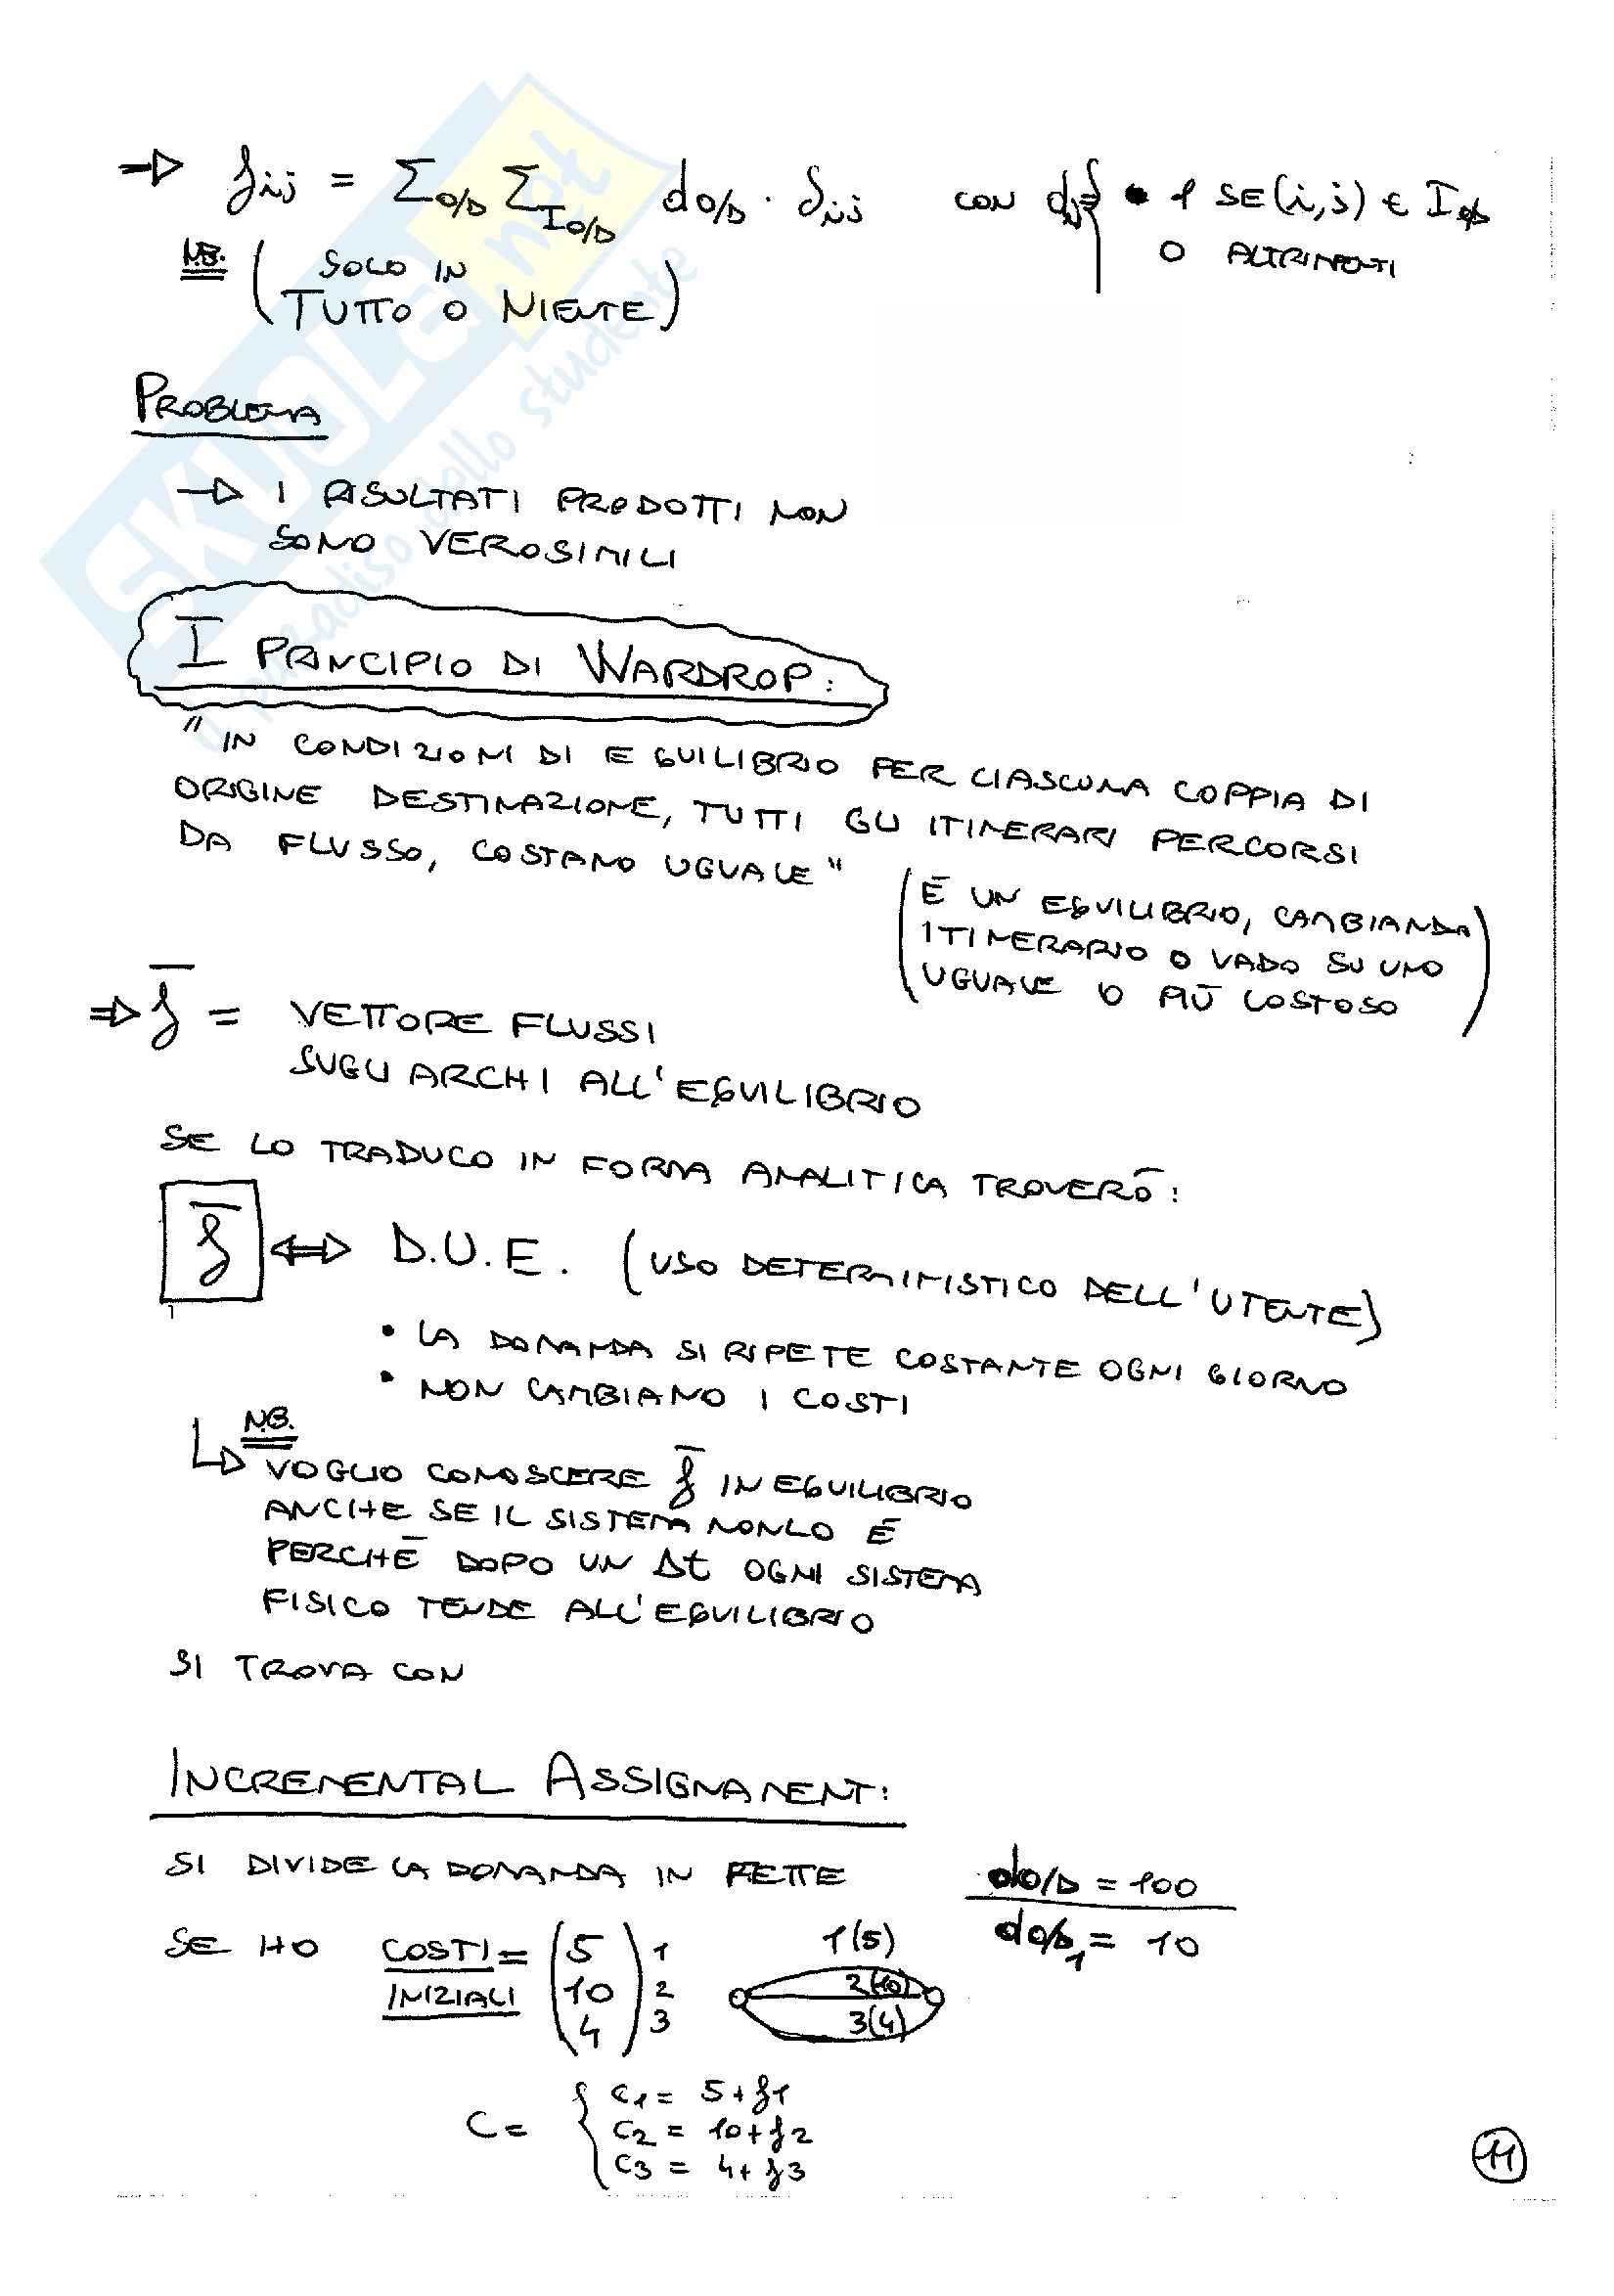 → fij = Σo/D ΣIo/D do/D · δij con dij { 1 SE (i,j) ∈ Io/D
0 ALTRIMENTI
N.B. ( SOLO IN
TUTTO O NIENTE )
PROBLEMA
→ I RISULTATI PRODOTTI NON
SONO VEROSIMILI
I PRINCIPIO DI WARDROP:
"IN CONDIZIONI DI EQUILIBRIO PER CIASCUNA COPPIA DI
ORIGINE DESTINAZIONE, TUTTI GLI ITINERARI PERCORSI
DA FLUSSO, COSTANO UGUALE"
(È UN EQUILIBRIO, CAMBIANDO
ITINERARIO O VADO SU UNO
UGUALE O PIÙ COSTOSO)
⇒ f̅ = VETTORE FLUSSI
SUGLI ARCHI ALL'EQUILIBRIO
SE LO TRADUCO IN FORMA ANALITICA TROVERÒ:
f̅ ⇔ D.U.E. (USO DETERMINISTICO DELL'UTENTE)
• LA DOMANDA SI RIPETE COSTANTE OGNI GIORNO
• NON CAMBIANO I COSTI
N.B.
↳ VOGLIO CONOSCERE f̅ IN EQUILIBRIO
ANCHE SE IL SISTEMA NON LO È
PERCHÈ DOPO UN Δt OGNI SISTEMA
FISICO TENDE ALL'EQUILIBRIO
SI TROVA CON
INCREMENTAL ASSIGNAMENT:
SI DIVIDE LA DOMANDA IN FETTE
do/D = 100
do/D1 = 10
SE HO COSTI INIZIALI = (5 10 4) 1 2 3
1(5)
2(10)
3(4)
C = { C1 = 5+f1
C2 = 10+f2
C3 = 4+f3
11
SKUOLA.net
il paradiso dello studente